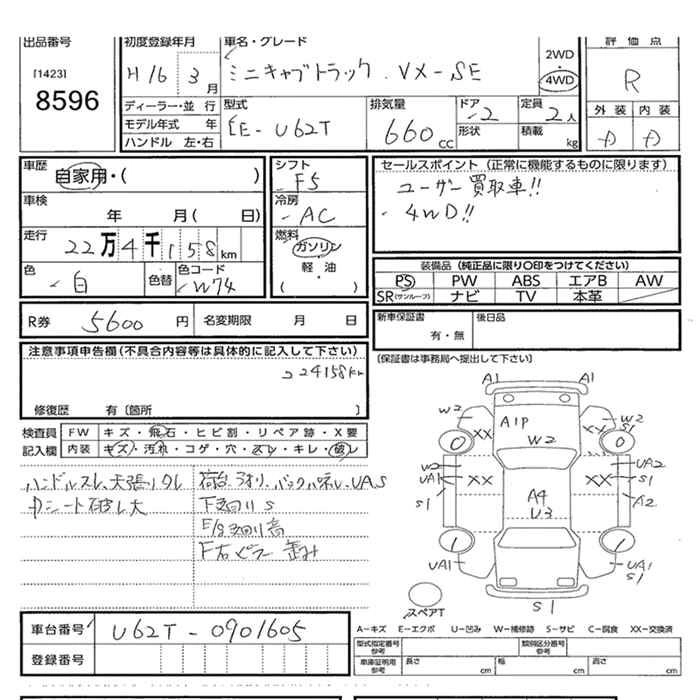 出品番号 初度登録年月 車名・グレード 評価点
[1423] H16 3月 ミニキャブトラック VX-SE 2WD R
8596 4WD
ディーラー・並行 型式 排気量 ドア 定員 外装 内装
モデル年式 年 EE-U62T 660cc 2 2人
形状 積載 kg
ハンドル 左・右
車歴 シフト セールスポイント (正常に機能するものに限ります)
自家用・( ) F5 ユーザー買取車!!
車検 冷房 4WD!!
年 月( 日) AC
走行 燃料
22万4千158km ガソリン
色 色替 色コード 軽・油 装備品 (純正品に限り○印をつけてください)
白 W74 ( ) PS PW ABS エアB AW
SR(サンルーフ) ナビ TV 本革
R券 5600円 名変期限 月 日 新車保証書 後日品
有・無
注意事項申告欄(不具合内容等は具体的に記入して下さい) [保証書は事務局へ提出して下さい]
224158km
修復歴 有 [箇所 ]
検査員 FW キズ・飛石・ヒビ割・リペア跡・X要
記入欄 内装 キズ・汚れ・コゲ・穴・スレ・キレ・破レ
ハンドルスレ、天張リクレ
中シート破レ大
下廻りS
A1 A1
W2 A1P W2
XX W2 XX
W2 UA2
UA1 XX XX UA1
S1 S1
A4 A2
U3
UA1 UA1
S1
スペアT S1
車台番号 U62T-0901605 A-キズ E-エクボ U-凹み W-補修跡 S-サビ C-腐食 XX-交換済
型式指定番号 参考 類別区分番号 参考
登録番号 車庫証明用 参考 長さ cm 幅 cm 高さ cm